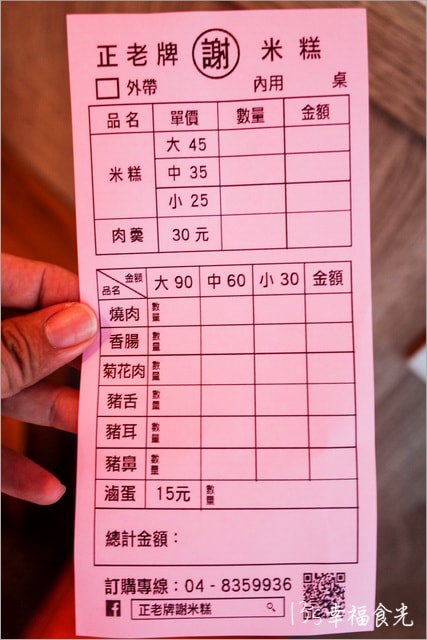 正老牌 謝 米糕
外帶 內用 桌
品名 單價 數量 金額
米糕 大 45
中 35
小 25
肉羹 30元
品名 金額 大 90 中 60 小 30 金額
燒肉 數量
香腸 數量
菊花肉 數量
豬舌 數量
豬耳 數量
豬鼻 數量
滷蛋 15元 數量
總計金額：
訂購專線：04 - 8359936
正老牌謝米糕
幸福食光